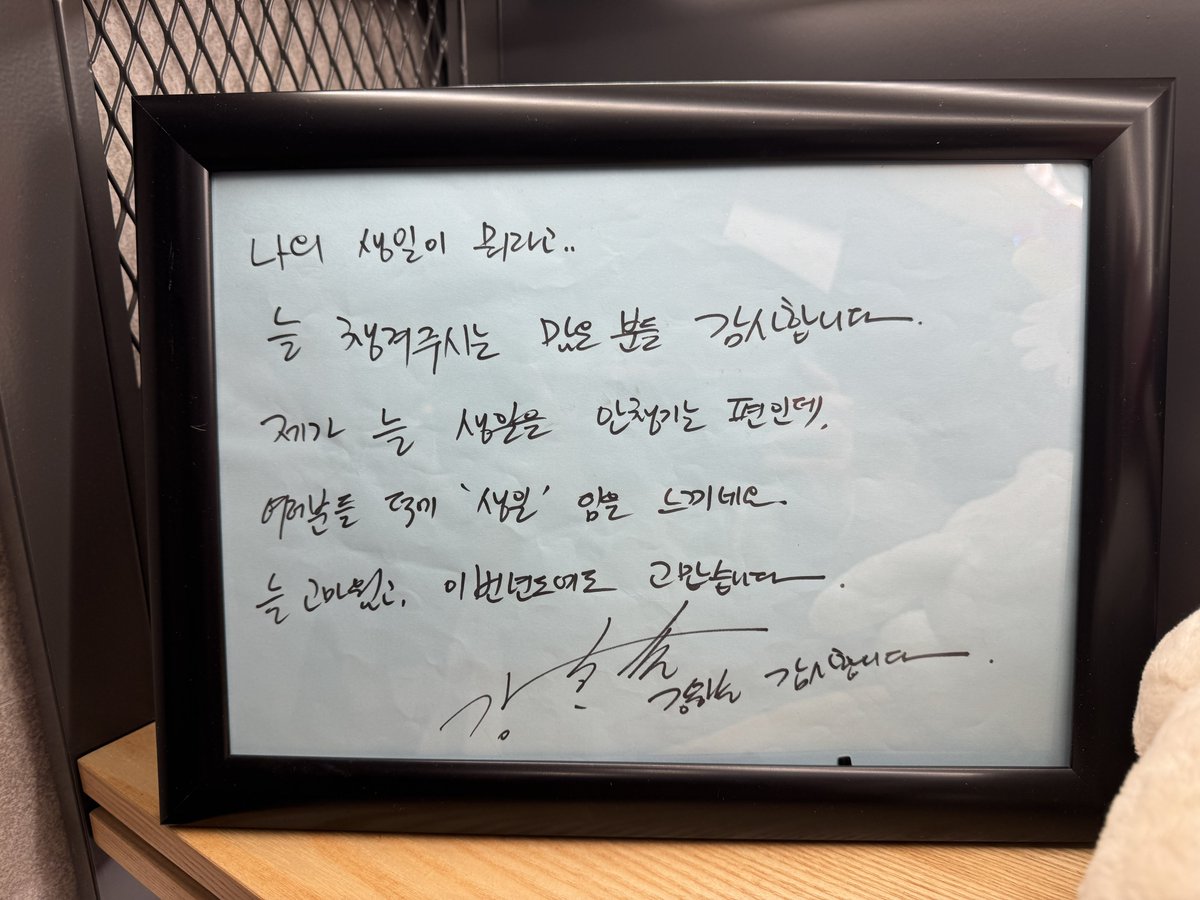 나의 생일이 뭐라고..
늘 챙겨주시는 많은 분들 감사합니다.
제가 늘 생일을 안챙기는 편인데,
여러분들 덕에 '생일' 임을 느끼네요.
늘 고마웠고, 이번년도에도 고맙습니다.
강하늘 감사합니다.